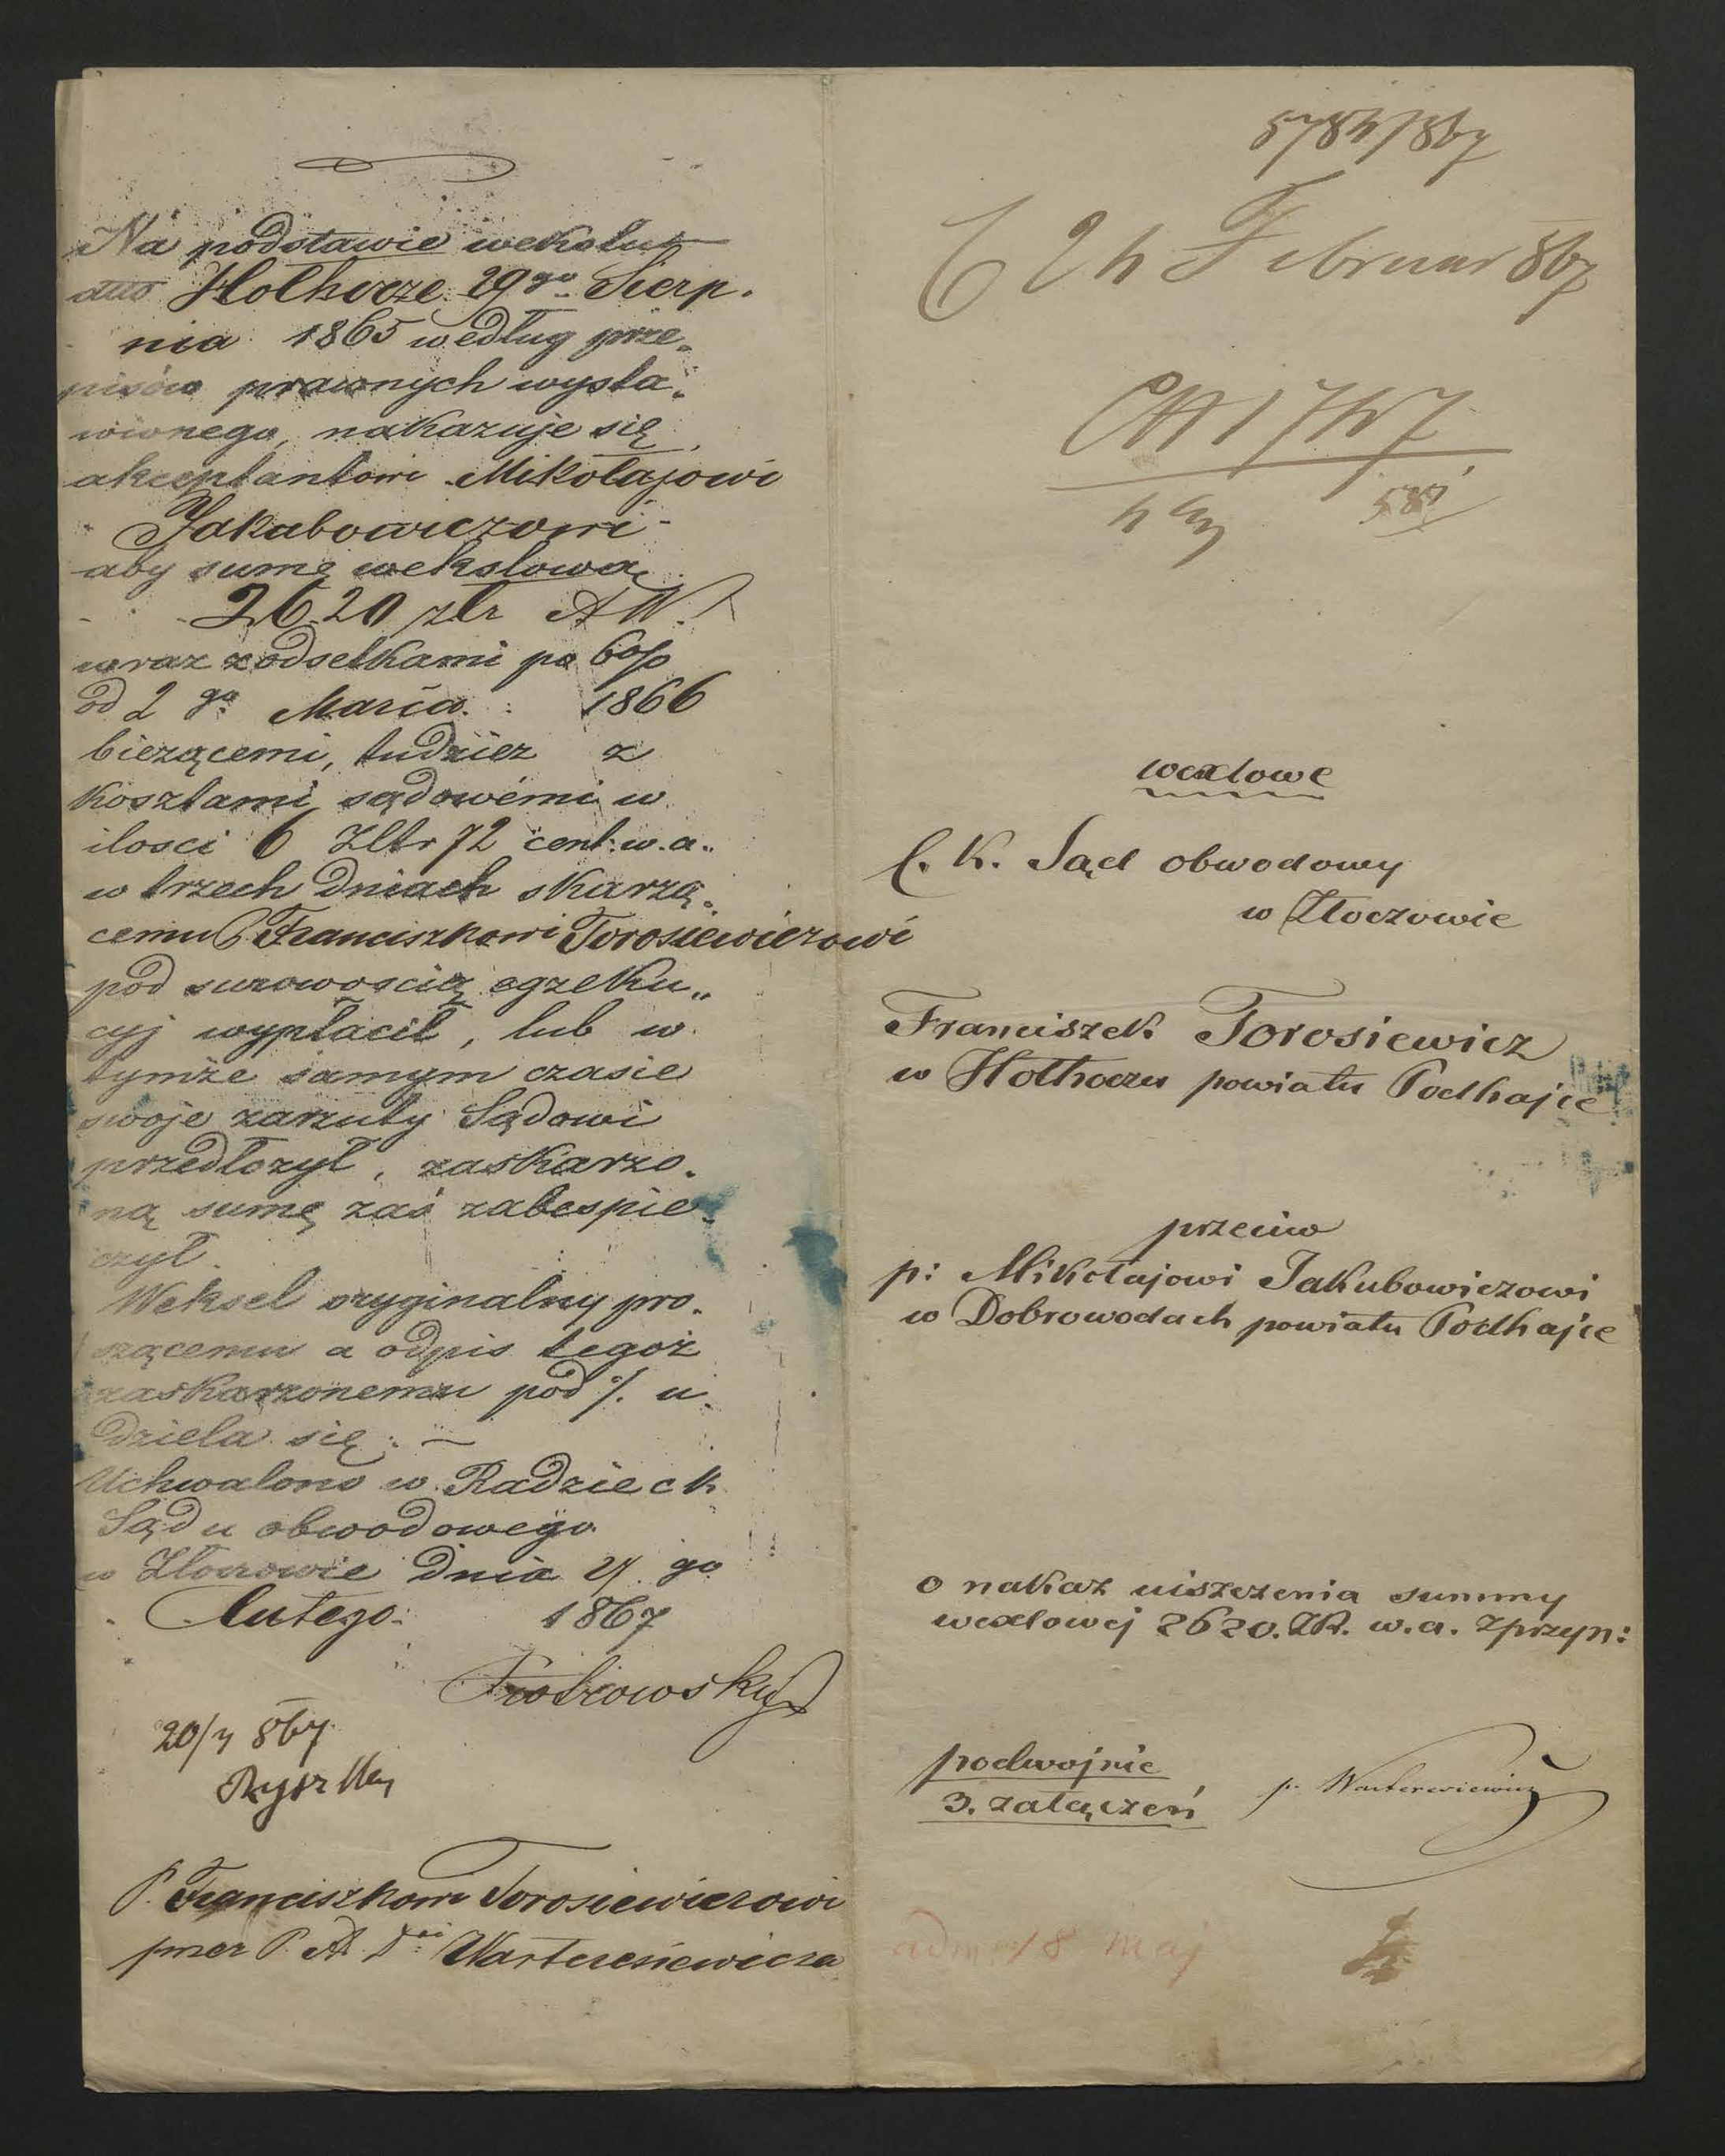 Na podstawie wekslu
dtto Hołhocze 29go Sierp.
nia 1865 według prze„
pisów prawnych wysta„
wionego, nakazuje się
akceptantowi Mikołajowi
Jakubowiczowi
aby sumę wekslową
2620 złr AW.
wraz z odsetkami po 6 0/0
od 2 go Marca 1866
bieżącemi, tudzież z
kosztami sądowémi w
ilosci 6 Zltr 72 cent. w. a.
w trzech dniach skarzą„
cemu P. Franciszkowi Torosiewiczowi
pod surowoscią egzeku„
cyj wypłacił, lub w
tymże samym czasie
swoje zarzuty Sądowi
przedłożył, zaskarzo„
ną sumę zaś zabespie„
czył.
Weksel oryginalny pro„
szącemu a odpis tegoż
zaskarzonemu pod ./. u„
dziela się. —
Uchwalono w Radzie c k
Sądu obwodowego
w Złoczowie dnia 27 go
Lutego 1867
20/4 867
P. Franciszkowi Torosiewiczowi
przez P. A. Dra Warteresiewicza
5784/867
Februar 867
wexlowe
C. K. Sąd obwodowy
w Złoczowie
Franciszek Torosiewicz
w Hołhoczu powiatu Podhajce
przeciw
p: Mikołajowi Jakubowiczowi
w Dobrowodach powiatu Podhajce
o nakaz uiszczenia summy
wexlowej 2620. ZR. w. a. z przyn:
podwojnie
3. załączeń
p. Warteresiewicz
adm 18 maj